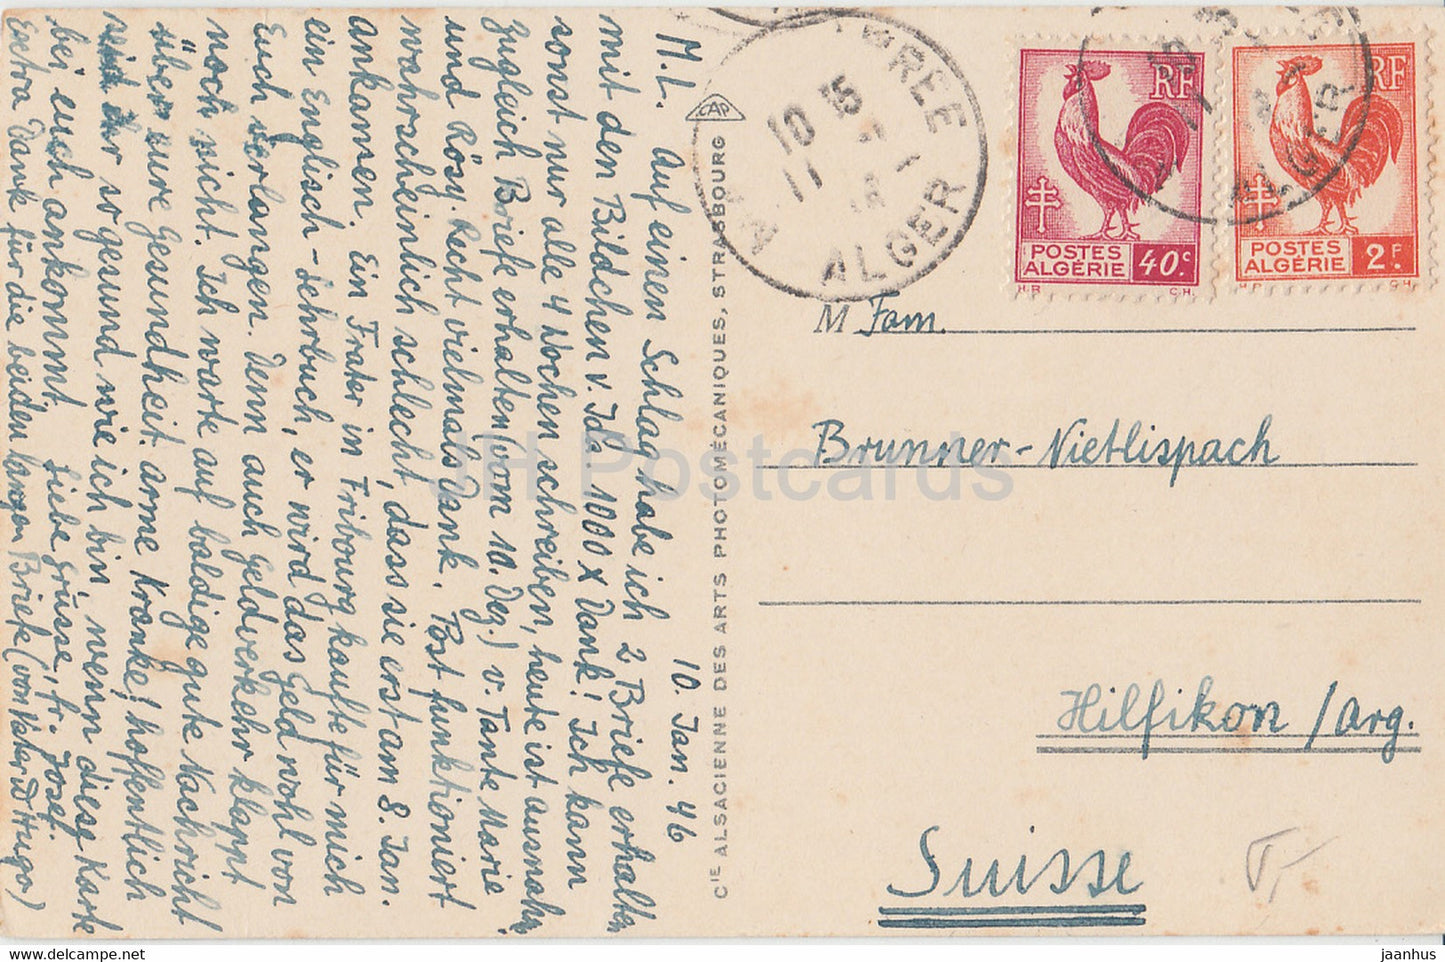 10. Jan. 46
M. L. Auf einen Schlag habe ich 2 Briefe erhalten
mit den Bildchen v. Ida 1000 x Dank! Ich kann
sonst nur alle 4 Wochen schreiben, heute ist ausnahm
zugleich Briefe erhalten (vom 10. Dez.) v. Tante Marie
und Rösy. Recht vielmals Dank. Post funktioniert
wahrscheinlich schlecht, dass sie erst am 8. Jan.
ankamen. Ein Frater in Fribourg kaufte für mich
ein Englisch-Lehrbuch, er wird das Geld wohl von
Euch verlangen. Denn auch Geldverkehr klappt
noch nicht. Ich warte auf baldige gute Nachricht
über eure Gesundheit. Arme Kranke! Hoffentlich
seid ihr so gesund wie ich bin, wenn diese Karte
bei euch ankommt. Liebe Grüsse, Fr. Josef.
Extra Danke für die beiden langen Briefe (von Vater & Hugo)
CAP
CIE ALSACIENNE DES ARTS PHOTOMÉCANIQUES, STRASBOURG
10 15
11
ALGER
RF
POSTES
ALGÉRIE 40c.
H.R. C.H.
RF
POSTES
ALGÉRIE 2F.
H.R. C.H.
ALGER
M Fam.
Brunner-Nietlispach
Hilfikon / Arg.
Suisse
T
JH Postcards
www.delcampe.net
jaanhus